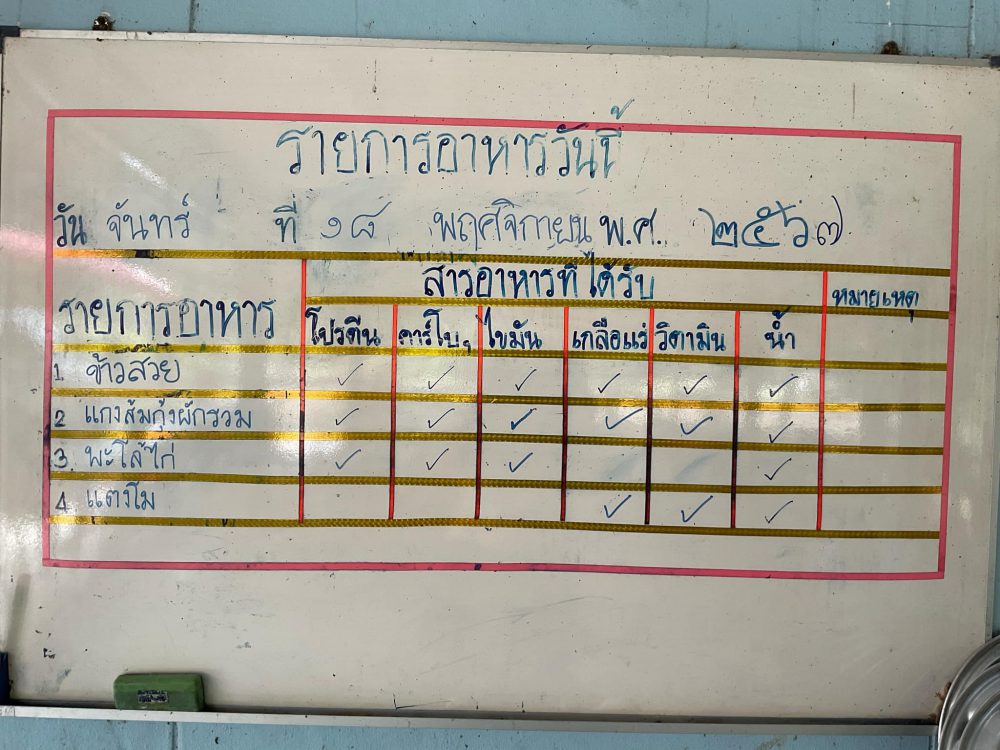 รายการอาหารวันนี้
วัน จันทร์ ที่ ๑๘ พฤศจิกายน พ.ศ. ๒๕๖๗
รายการอาหาร สารอาหารที่ได้รับ หมายเหตุ
โปรตีน คาร์โบฯ ไขมัน เกลือแร่ วิตามิน น้ำ
1 ข้าวสวย ✓ ✓ ✓ ✓ ✓ ✓
2 แกงส้มกุ้งผักรวม ✓ ✓ ✓ ✓ ✓ ✓
3 พะโล้ไก่ ✓ ✓ ✓ ✓
4 แตงโม ✓ ✓ ✓